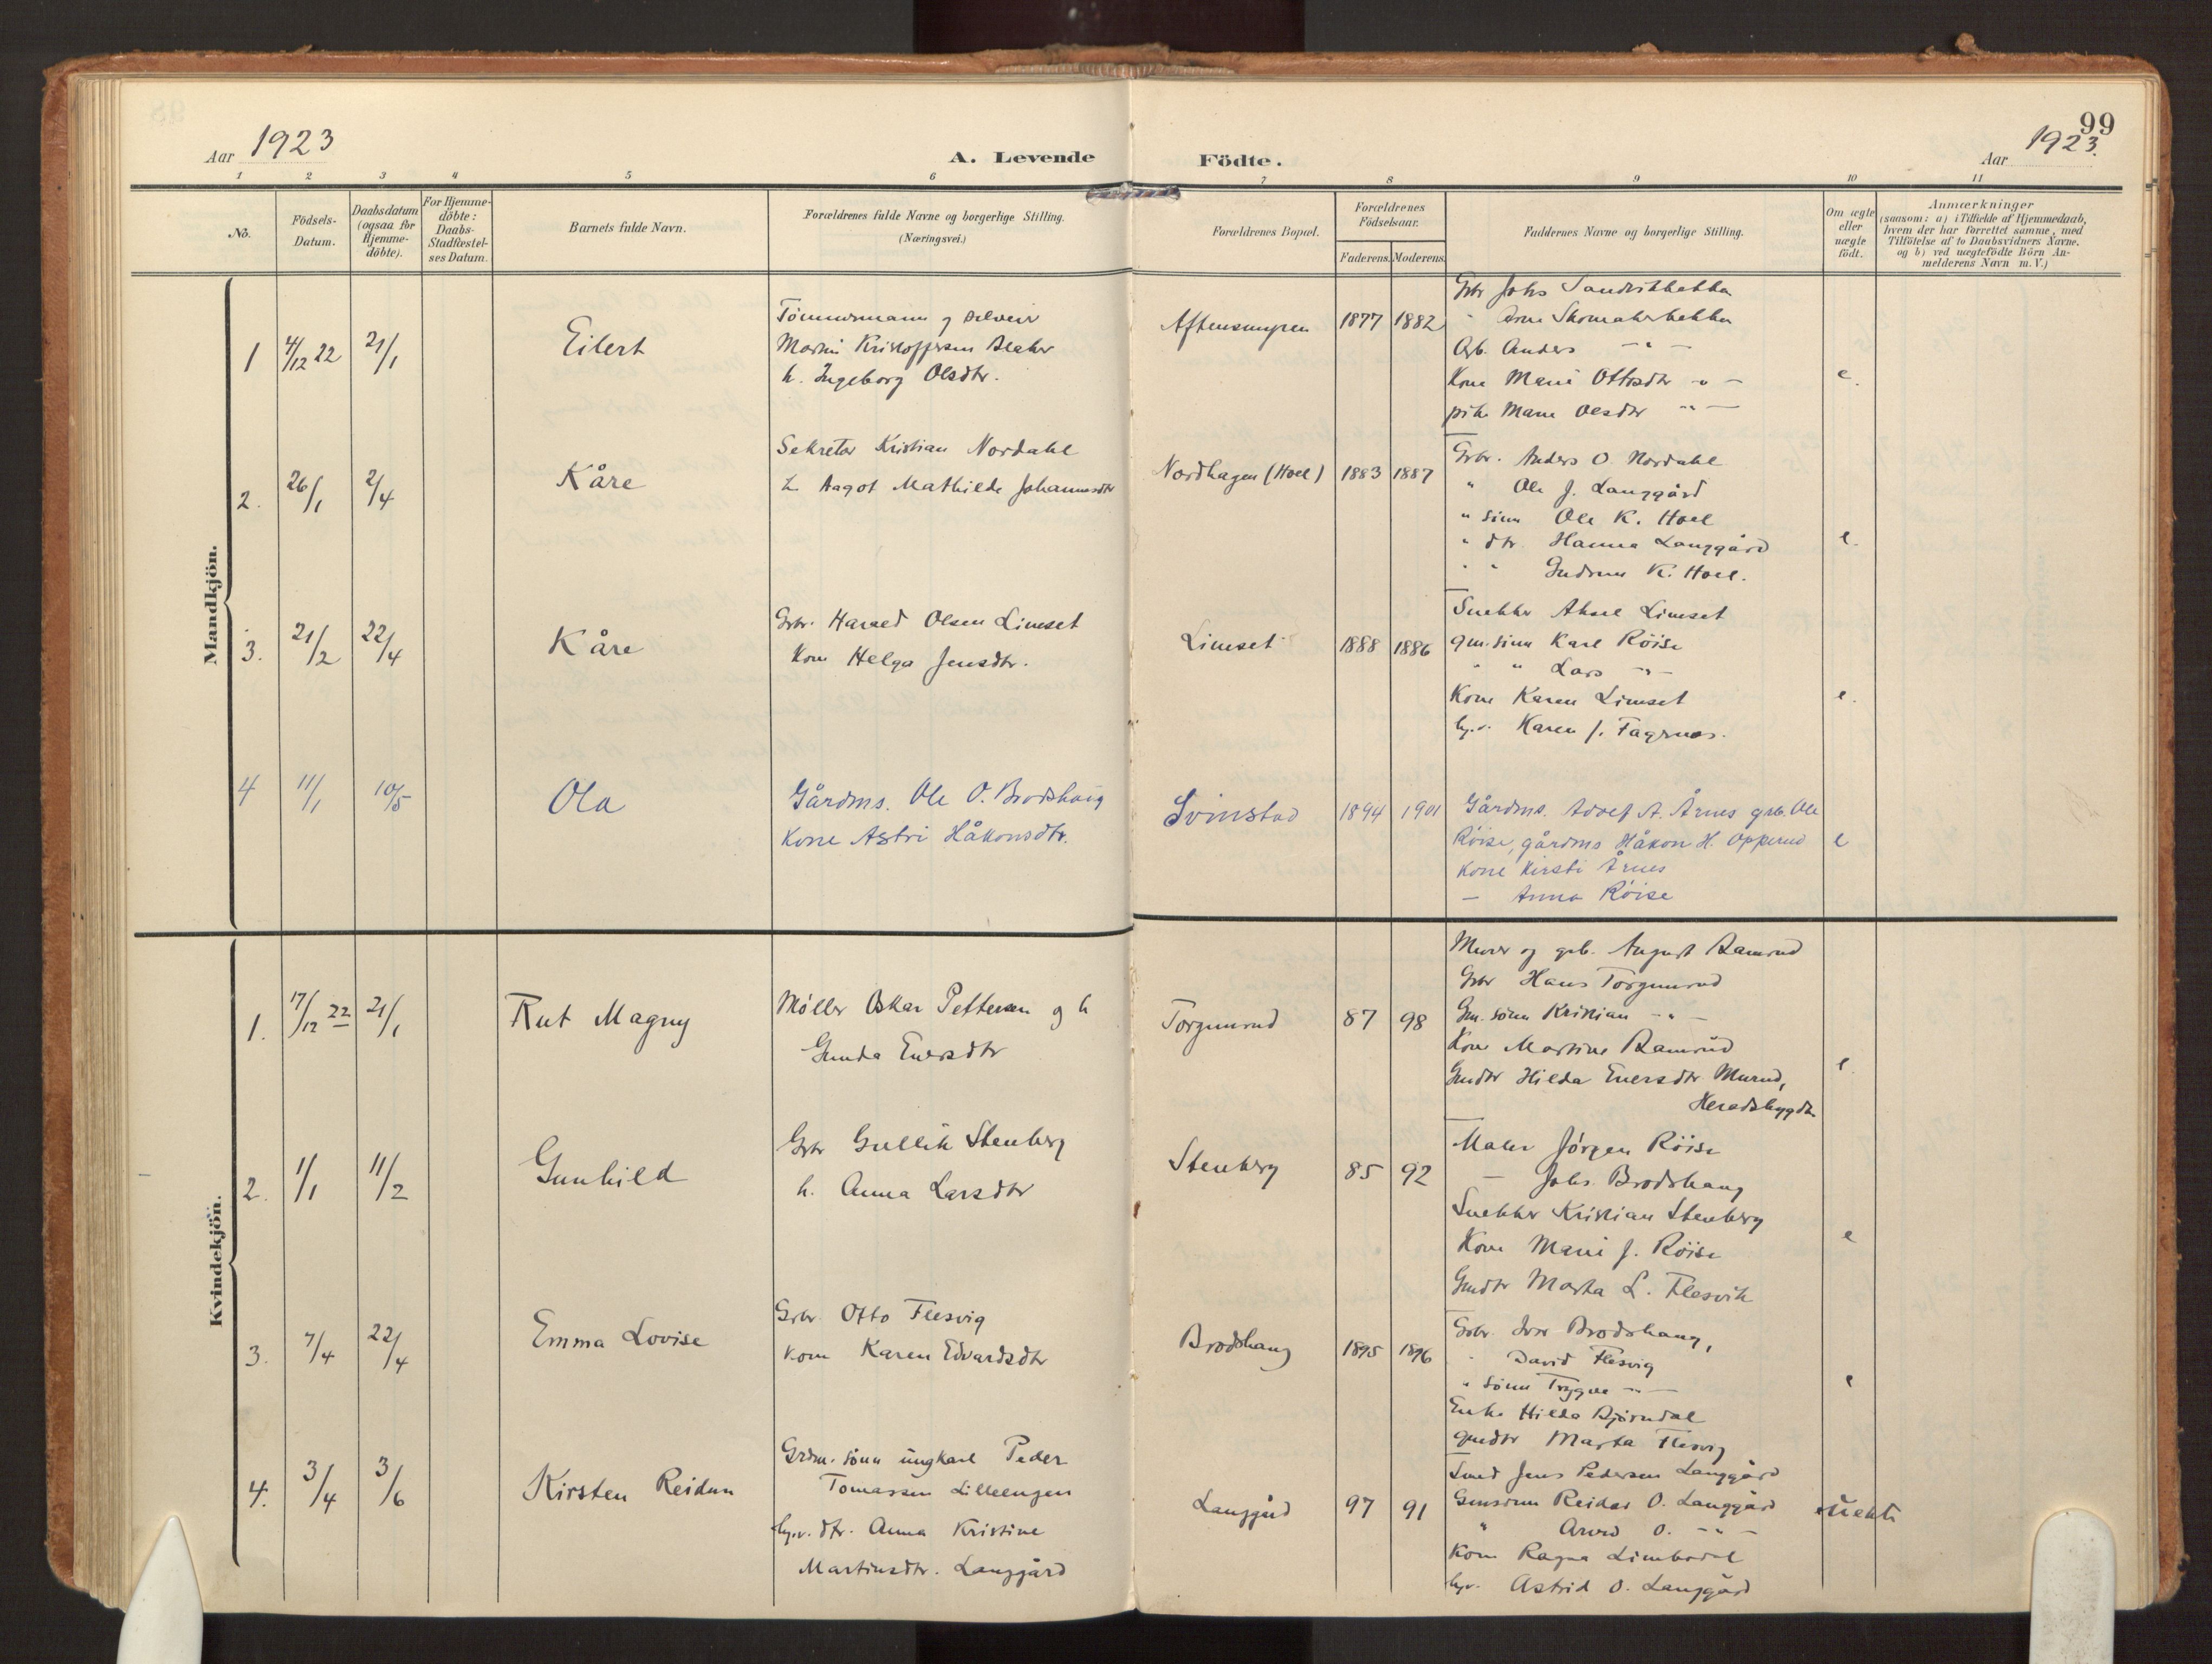 99
Aar 1923
A. Levende Födte.
Aar 1923.
1 2 3 4 5 6 7 8 9 10 11
No.
Födsels-Datum.
Daabsdatum (ogsaa for Hjemme-döbte).
For Hjemme-döbte: Daabs-Stadfæstel-ses Datum.
Barnets fulde Navn.
Forældrenes fulde Navne og borgerlige Stilling.
(Næringsvei.)
Forældrenes Bopæl.
Forældrenes Födselsaar.
Faderens. Moderens.
Faddernes Navne og borgerlige Stilling.
Om ægte eller uægte födt.
Anmærkninger
(saasom: a) i Tilfælde af Hjemmedaab,
hvem der har forrettet samme, med
Tilföielse af to Daabsvidners Navne.
og b) ved uægtefödte Börn An-
melderens Navn m. V.)
Mandkjön.
1 4/12 22 21/1 Eilert
Tømmermann og selveier
Martin Kristoffersen
k. Ingeborg Olsdtr.
1877 1882
Gbr Johs
Arne
Arb. Anders -"-
Kone Marie Ottosdtr -"-
pike Marie Olsdtr -"-
e.
2. 26/1 2/4 Kåre
Sekretær Kristian Nordahl
k. Aagot Mathilde Johannesdtr
Nordhagen (Hoel) 1883 1887
Gbr. Anders O. Nordahl
" Ole J. Langgård
" sønn Ole K. Hoel
" dtr. Hanna Langgård
" " Gudrun K. Hoel.
e.
3. 21/2 22/4 Kåre
Gbr. Harald Olsen Limset
Kone Helga Jensdtr.
Limset 1888 1886
Snekker Aksel Limset
gm. sønn Karl Röise
" " Lars -"-
Kone Karen Limset
Karen J. Fagernes.
e.
4 11/1 10/5 Ola
Gårdms. Ole O. Brodshaug
Kone Astri Håkonsdtr.
Svinstad 1894 1901
Gårdms. Adolf A. Årnes grb. Ole
Röise, gårdms Håkon H. Opperud
Kone Kirsti Årnes
— Anna Röise
e
Kvindekjön.
1. 17/12 22 21/1 Rut Magny
Møller Oskar Pettersen og k
Gunda Enersdtr
Torgunrud 87 98
Murer og grb. August Ramrud
Gbr Hans Torgunrud
Gm. sönn Kristian -"-
Kone Martine Ramrud
Gmdtr Hilda Enersdtr Murud,
Heradsbygda
e.
2. 1/1 11/2 Gunhild
Gbr Gullik Stenberg
k. Anna Larsdtr
Stenberg 85 92
Maler Jörgen Röise
— Johs. Brodshaug
Snekker Kristian Stenberg
Kone Marie J. Röise
Gmdtr Marta L. Flesvik
e
3. 7/4 22/4 Emma Lovise
Gbr Otto Flesvig
Kone Karen Edvardsdtr
Brodshaug 1895 1896
Gbr. Iver Brodshaug,
" David Flesvig
" sönn Trygve -"-
Enke Hilda Björndal
gmdtr Marta Flesvig
e
4. 3/4 3/6 Kirsten Reidun
Grdm. sönn ungkarl Peder
Tomassen Lilleengen
dtr. Anna Kristine
Martinsdtr. Langgård
Langgård 97 91
Smed Jens Pedersen Langgård
Gmsönn Reidar O. Langgård
" Arvid O. -"-
Kone Ragna Limbodal
Astrid O. Langgård
uekte